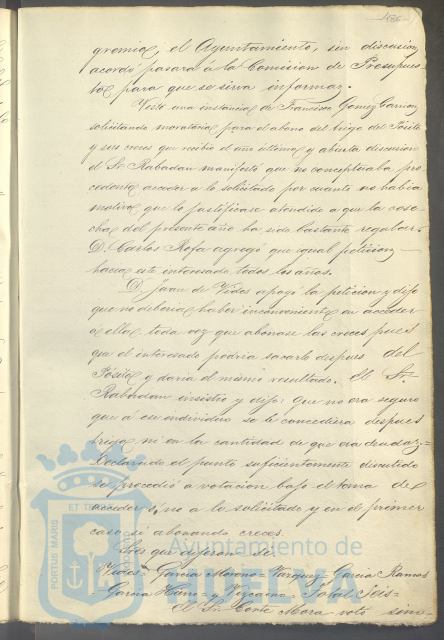 186
gremio, el Ayuntamiento, sin discusion,
acordó pasara á la Comision de Presupues-
tos para que se sirva informar.
Vista una instancia de Francisco Gomez
solicitando moratoria para el abono del trigo del Pósito
y sus creces que recibió el año último y abierta discusion
el Sr. Rabadan manifestó que no conceptuaba pro-
cedente acceder a lo solicitado por cuanto no habia
motivo que lo justificase atendido a que la cose-
cha del presente año ha sido bastante regular.
D. Carlos Rofa agregó que igual peticion
hacia este interesado todos los años.
D. Juan de Vides apoyó la peticion y dijo
que no deberia haber inconveniente en acceder
á ella, toda vez que abonase las creces pues
que el interesado podria sacarlo despues del
Pósito y daria el mismo resultado. El Sr.
Rabadan insistió y dijo: que no era seguro
que á ese individuo se le concediera despues
trigo ni en la cantidad de que era deudor=
Declarado el punto suficientemente discutido
se procedió a votacion bajo el tema de
acceder ó no a lo solicitado y en el primer
caso si abonando creces.
Señores que dijeron si:
Vides= Garcia Moreno= Vazquez= Garcia Ramos
= Garcia y Vizcaino= Total Seis=
El Sr. Corte Mora votó
PORTUS MARIS ET TERRAE
Ayuntamiento de
HUELVA